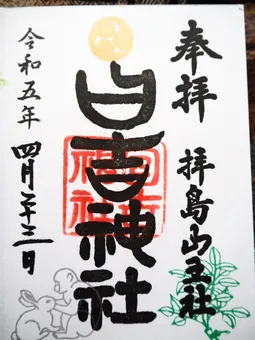 奉拝 拝島山王社
日吉神社
令和五年 四月二十三日